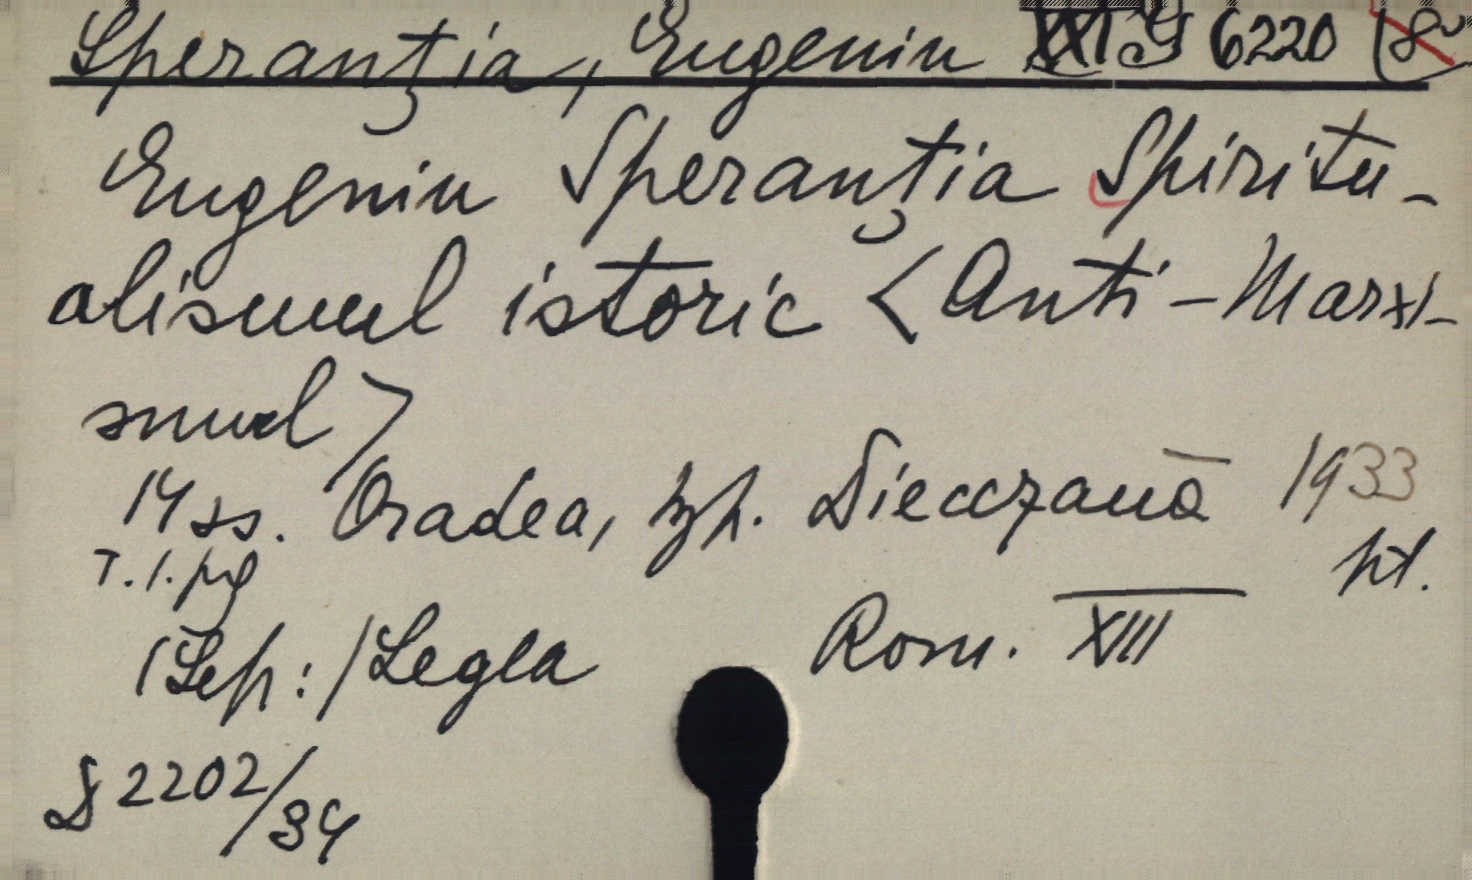 Speranția, Eugeniu XXI G 6220 (8°
Eugeniu Speranția Spiritu-
alismul istoric <Anti-Marxi-
smul>
14 ss. Oradea, typ. Diecezană 1933
T. 1. pg pt.
(Sep:/Legea Rom. XIII
§ 2202/34